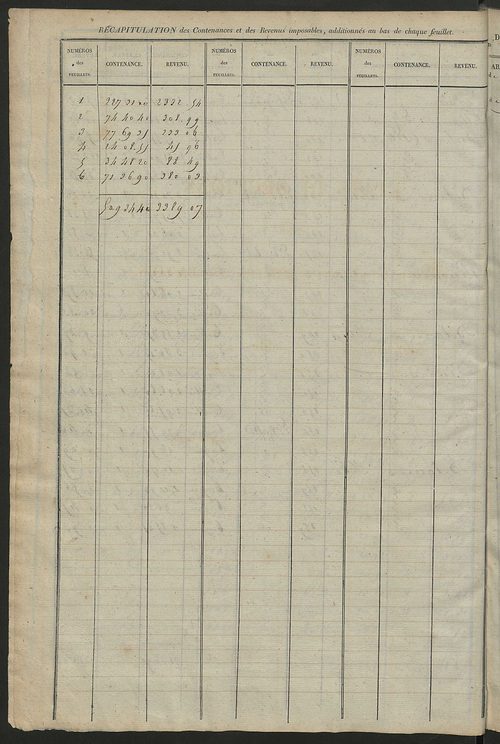 RÉCAPITULATION des Contenances et des Revenus imposables, additionnés au bas de chaque feuillet.
NUMÉROS des FEUILLETS. CONTENANCE. REVENU. NUMÉROS des FEUILLETS. CONTENANCE. REVENU. NUMÉROS des FEUILLETS. CONTENANCE. REVENU.
1 227 31 00 2332 54
2 74 40 40 308 99
3 77 69 35 233 06
4 24 08 55 45 96
5 34 48 20 88 49
6 71 36 90 380 03
509 34 40 3389 07